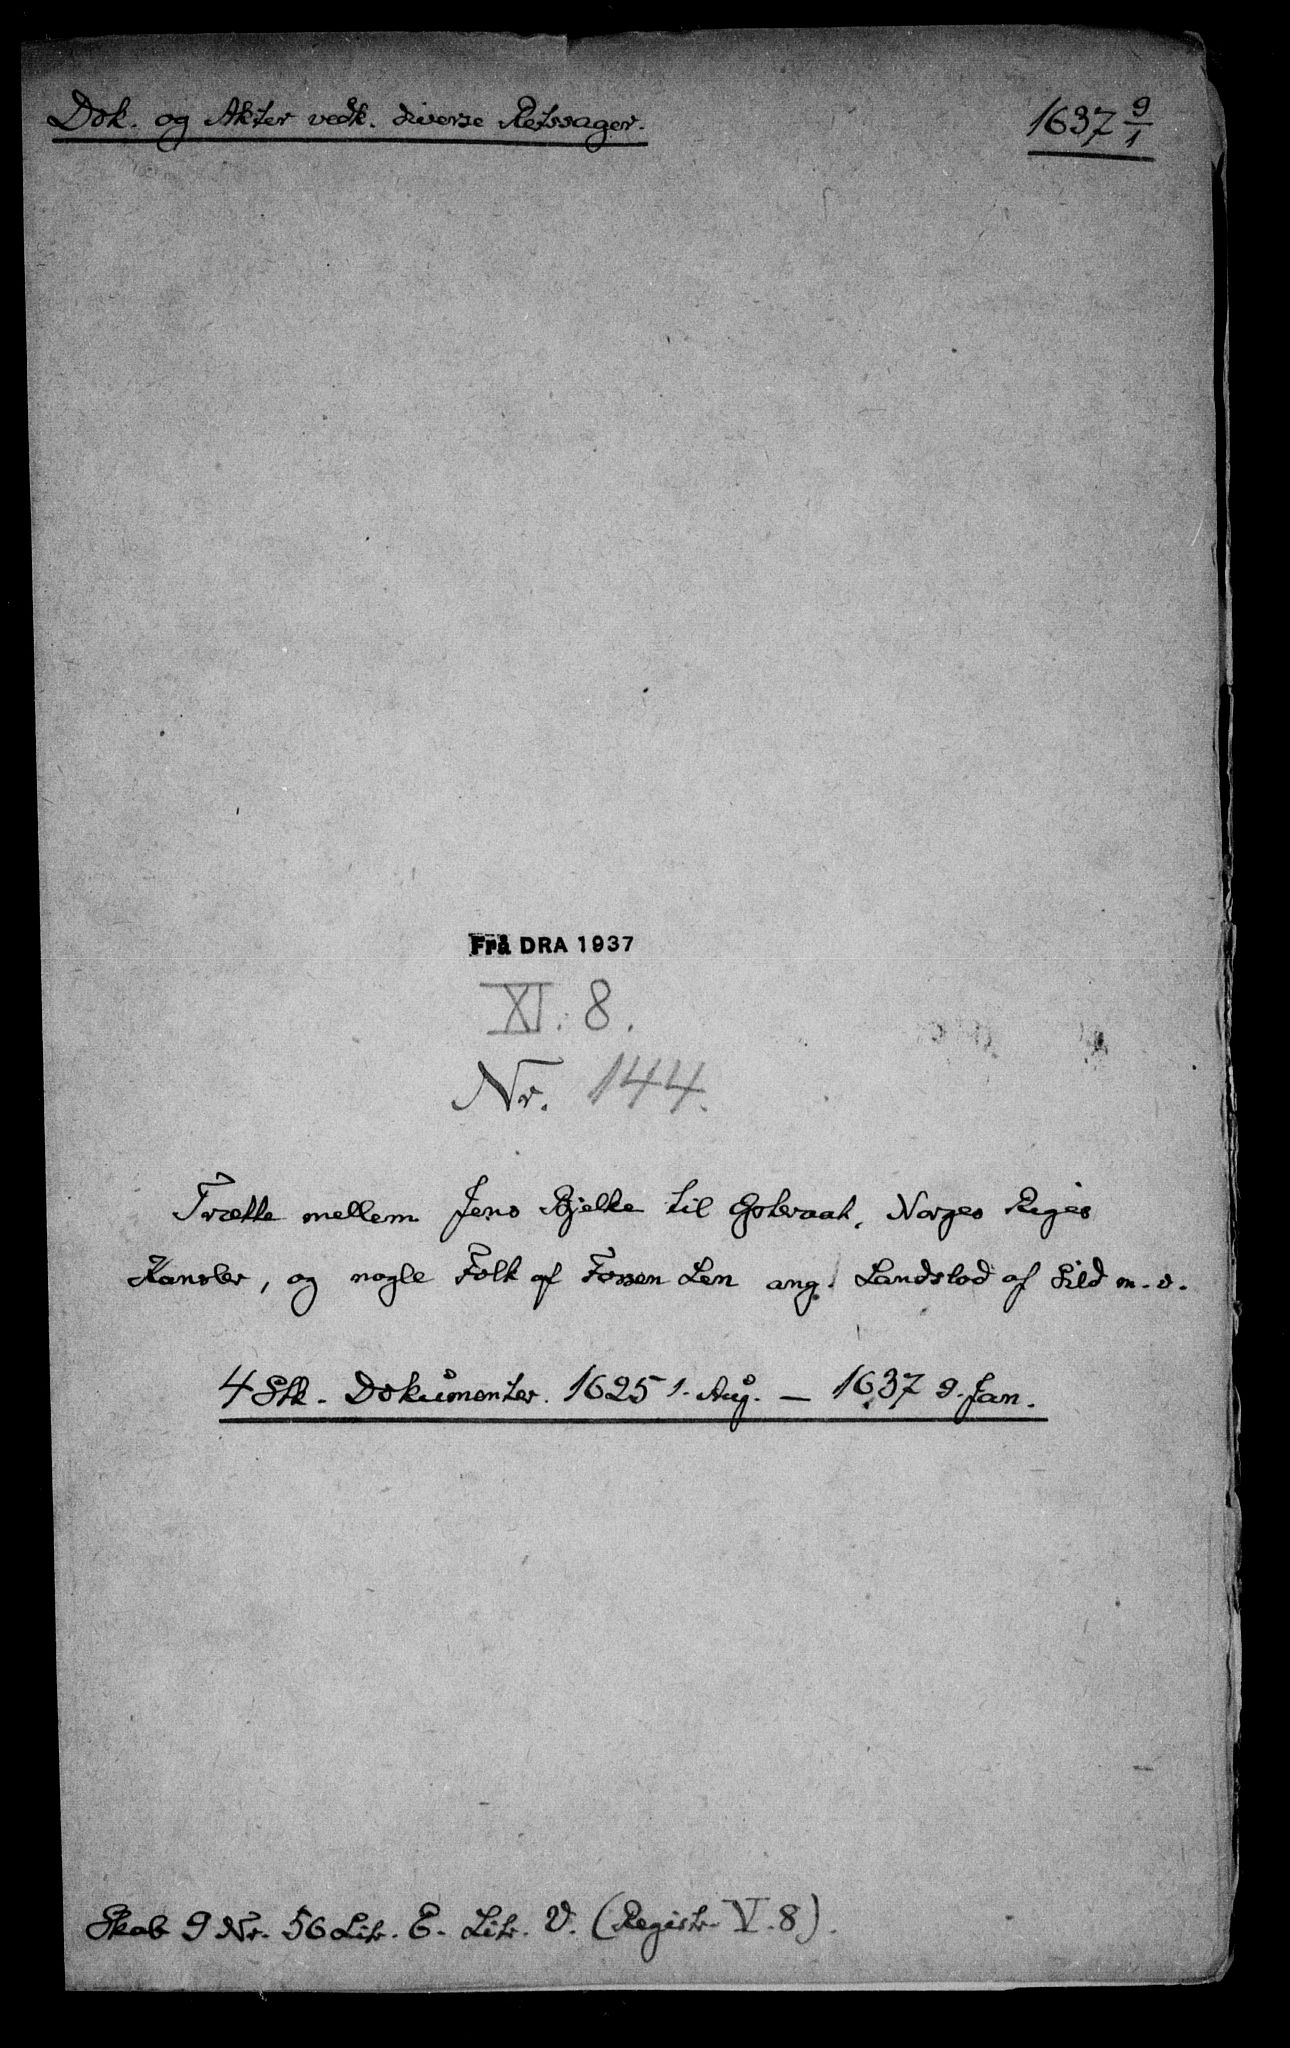 Dok. og Akter vedk. diverse Retssager.
1637 9/1
Frå DRA 1937
XI. 8.
Nr. 144.
Trætte mellem Jens Bjelke til Østeraat, Norges Riges
Kansler, og nogle Folk af Fosen Len ang. Landslod af Sild m.v.
4 Stk. Dokumenter. 1625 1. Aug. — 1637 9. Jan.
Skab 9 Nr. 56 Litr. E. Litr. V. (Registr. V. 8).